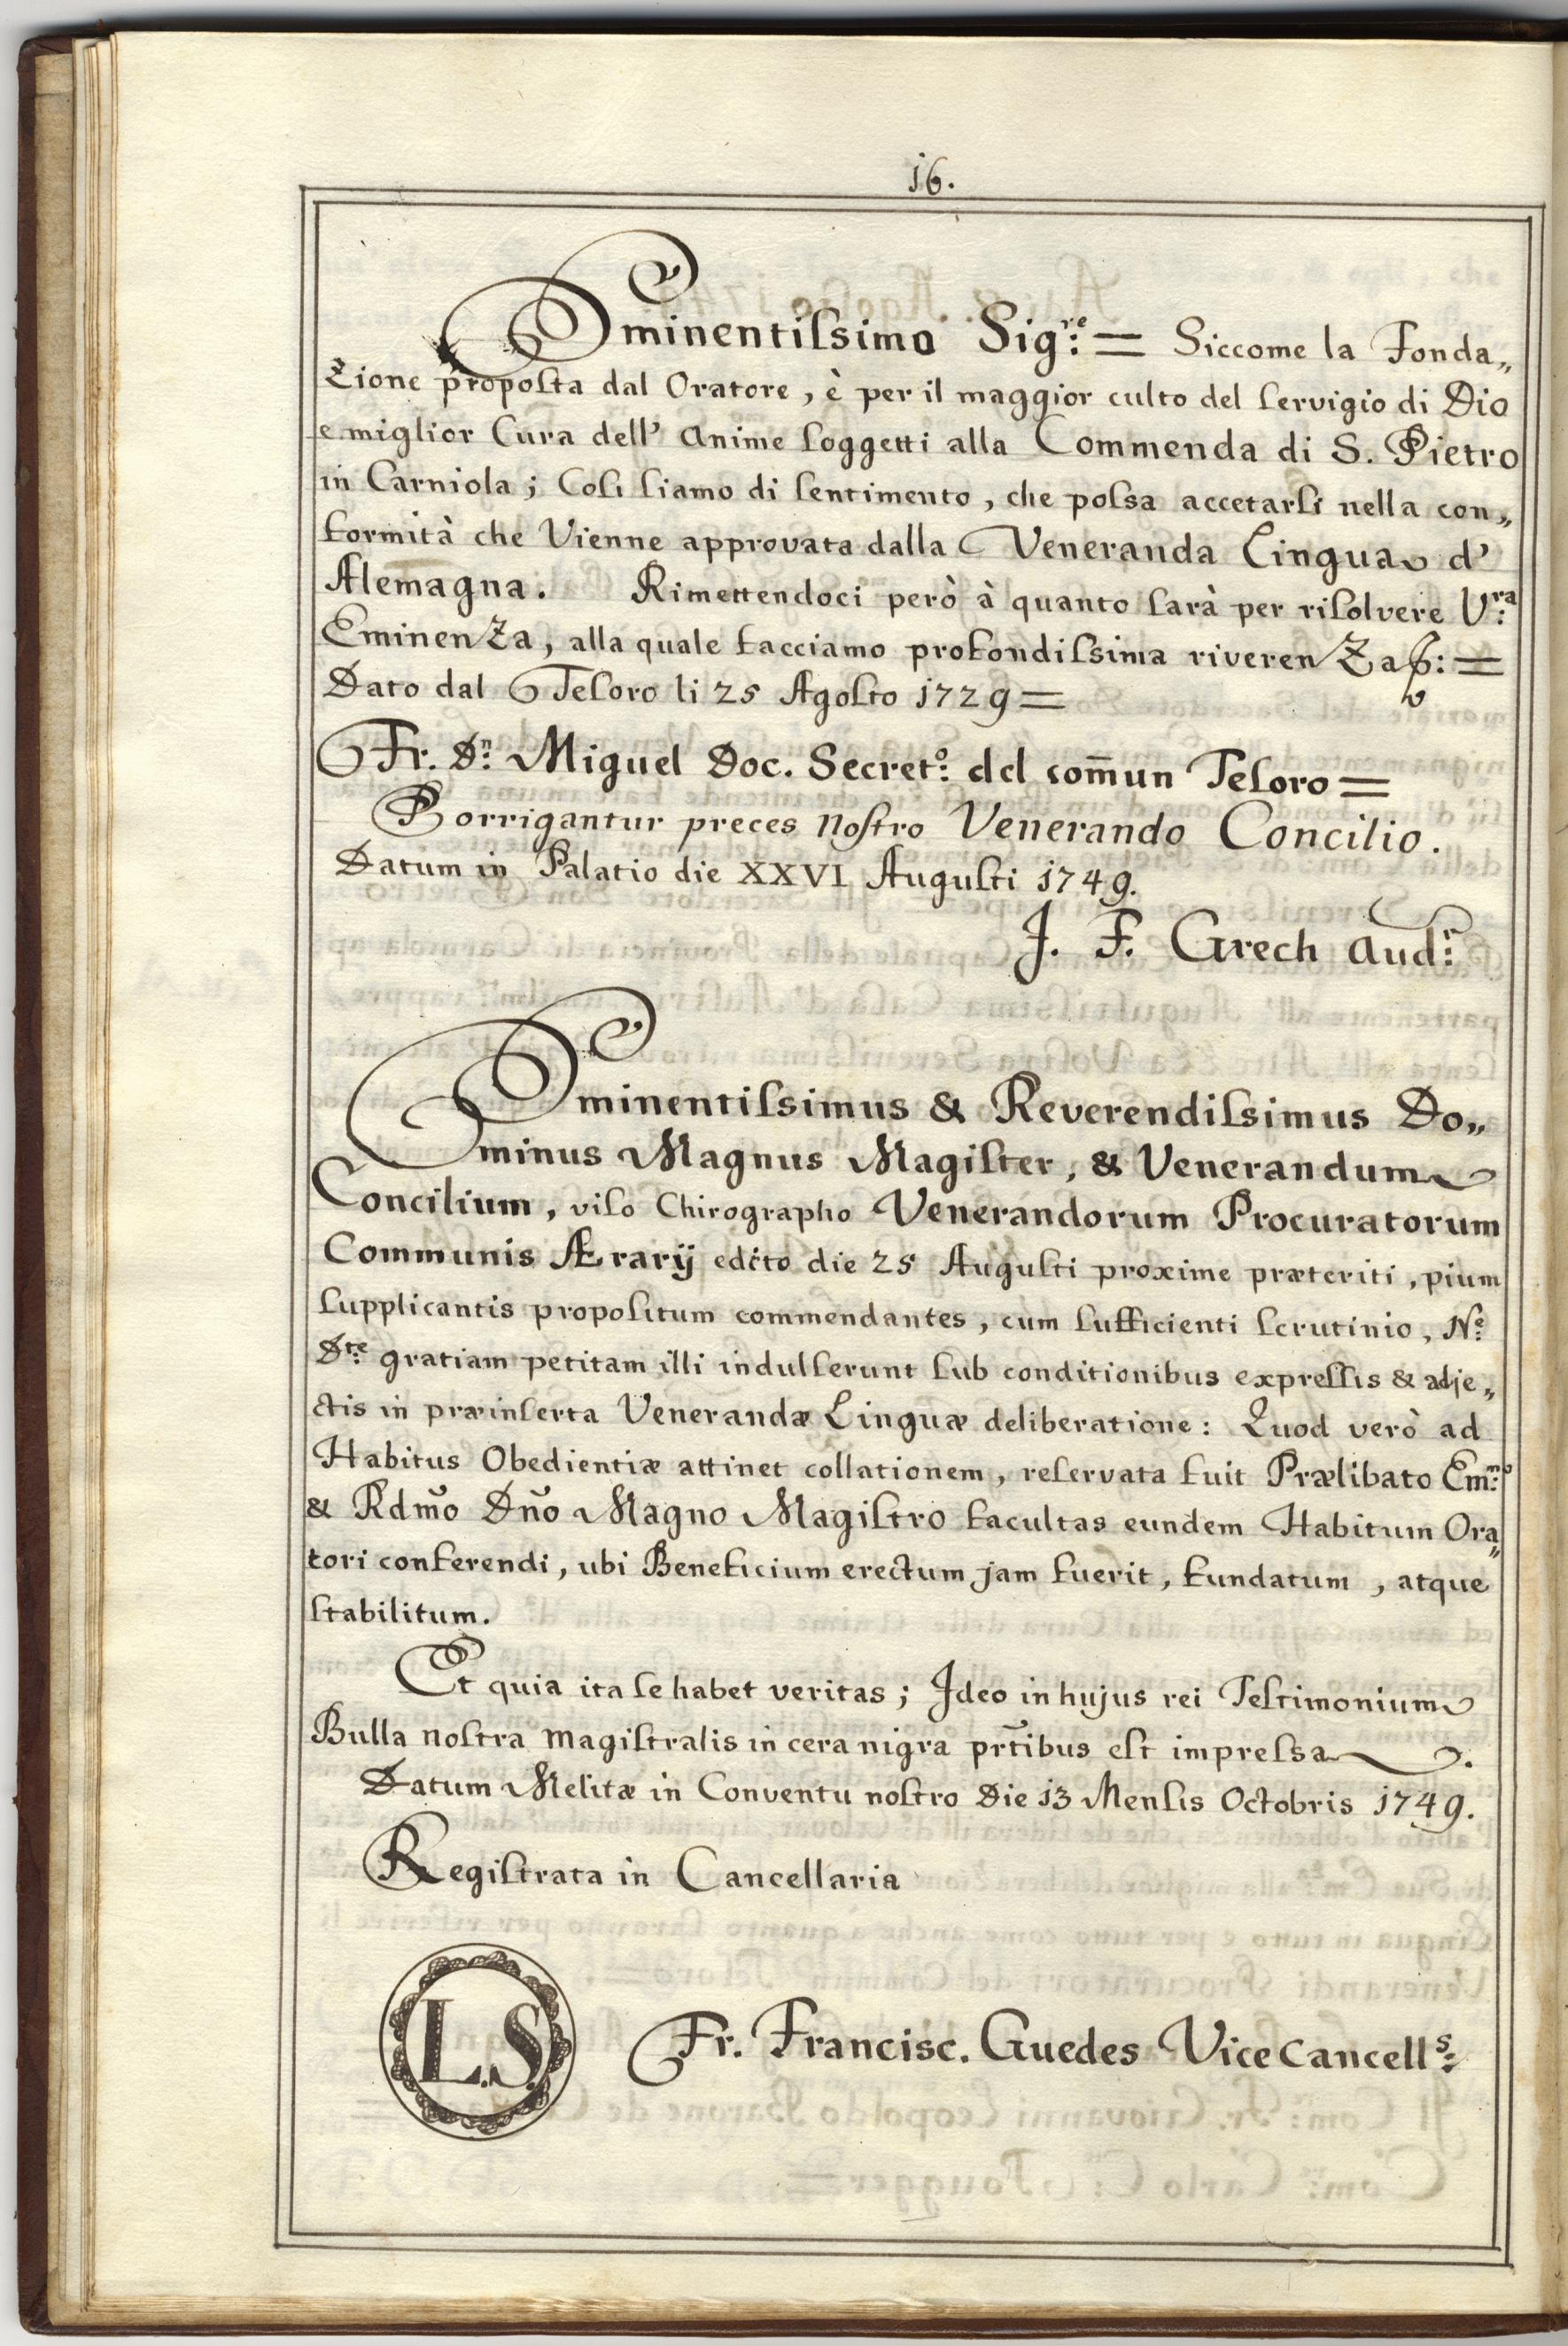 16.
Eminentiſsimo Sig:re = Siccome la Fonda„
Zione propoſta dal Oratore, è per il maggior culto del ſervigio di Dio
e miglior Cura dell' Anime ſoggetti alla Commenda di S. Pietro
in Carniola; Coſi ſiamo di ſentimento, che poſsa accetarſi nella con„
formità che Vienne approvata dalla Veneranda Lingua d'
Alemagna. Rimettendoci però à quanto ſarà per riſolvere V:ra
EminenZa, alla quale facciamo profondiſsima riverenZa p: =
Dato dal Teſoro li 25 Agoſto 1729 =
Fr. D:n Miguel Doc. Secret:o del com̄un Teſoro =
Porrigantur preces Noſtro Venerando Concilio.
Datum in Palatio die XXVI Auguſti 1749.
J. F. Grech Aud:r
Eminentiſsimus & Reverendiſsimus Do„
minus Magnus Magiſter, & Venerandum
Concilium, viſo Chirographo Venerandorum Procuratorum
Communis Ærarÿ edcto die 25 Auguſti proxime præteriti, pium
ſupplicantis propoſitum commendantes, cum ſufficienti ſcrutinio, N:e
D:te gratiam petitam illi indulſerunt ſub conditionibus expreſſis & adje„
ctis in præinſerta Venerandæ Linguæ deliberatione: Quod verò ad
Habitus Obedientiæ attinet collationem, reſervata fuit Prælibato Em:mo
& Rdm̃o Dño Magno Magiſtro facultas eundem Habitum Ora„
tori conferendi, ubi Beneficium erectum jam fuerit, fundatum, atque
ſtabilitum.
Et quia ita ſe habet veritas; Jdeo in hujus rei Teſtimonium
Bulla noſtra Magiſtralis in cera nigra pr̃tibus eſt impreſsa.
Datum Melitæ in Conventu noſtro Die 13 Menſis Octobris 1749.
Regiſtrata in Cancellaria
L.S.
Fr. Francisc. Guedes Vice Cancell:s